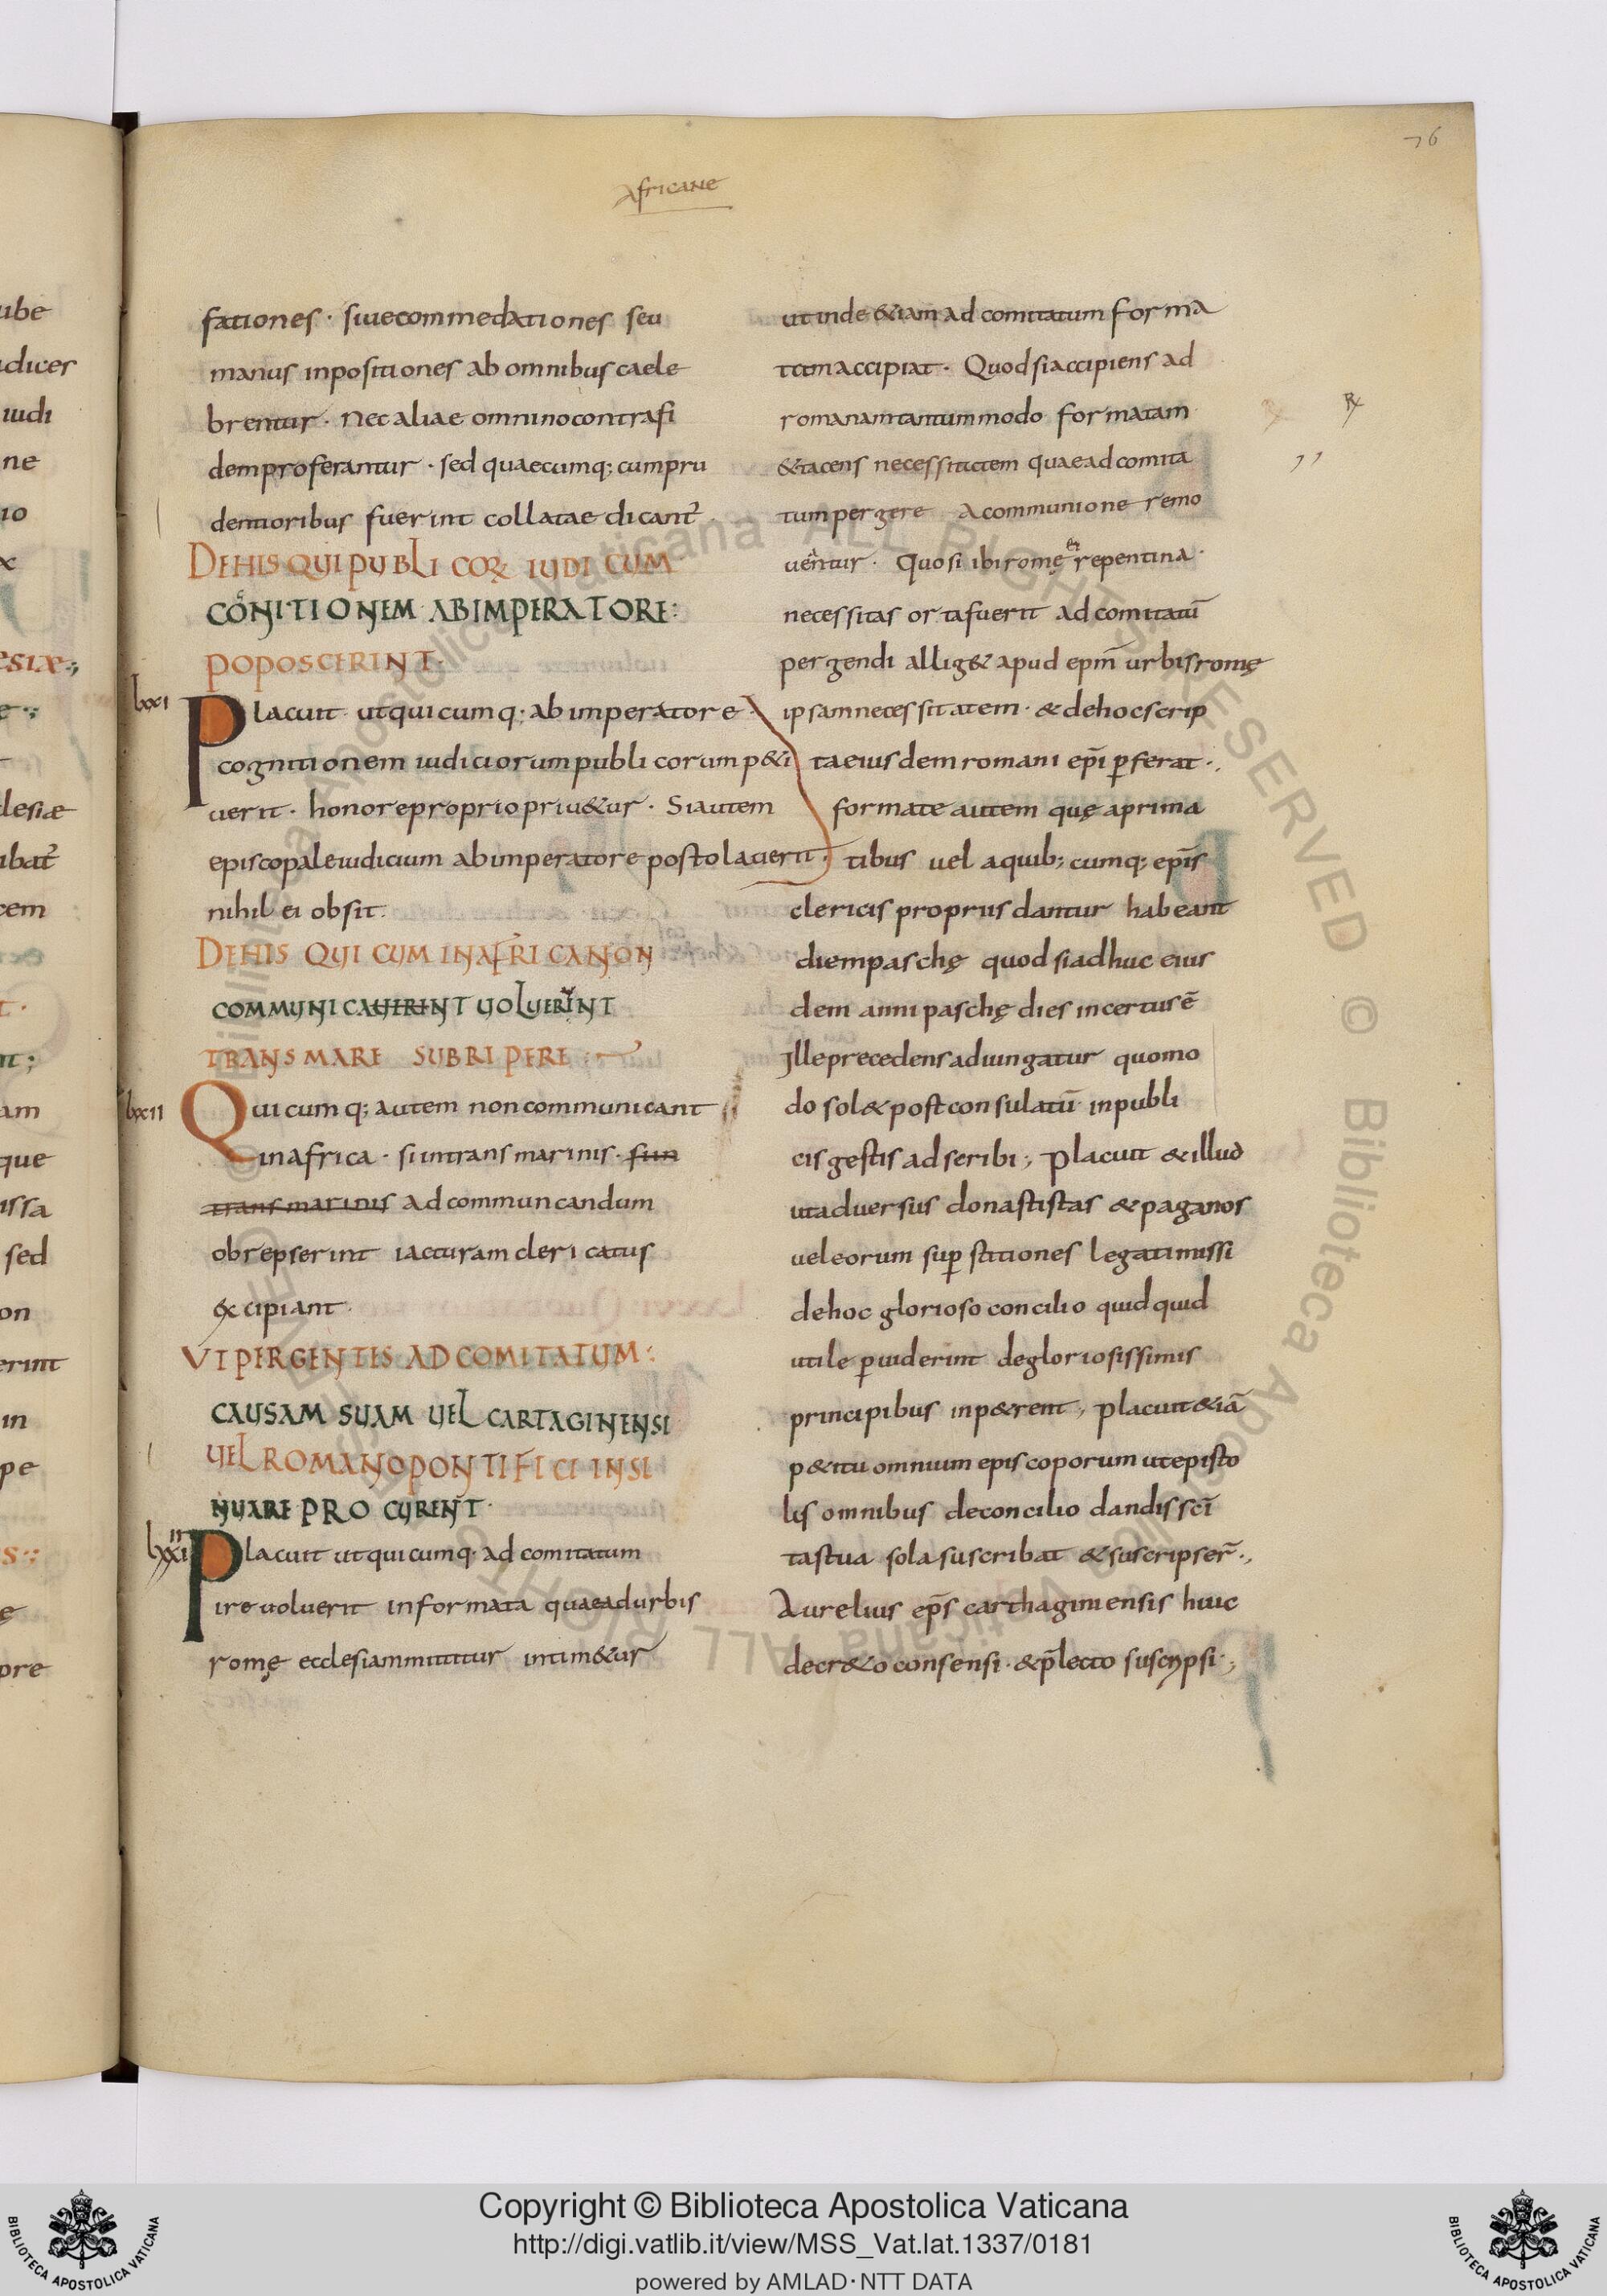 76
Africane
fationes · siuecommedationes seu
manus inpositiones ab omnibus caele
brentur · Nec aliae omninocontrafi
demproferantur · sed quaecumq; cumpru
dentioribus fuerint collatae dicant̄
DEHIS QUI PUBLICOꝜ IUDICUM
COGNITIONEM AB IMPERATORE:
POPOSCERINT·
lxxi
Placuit utquicumq; abimperatore
cognitionem iudiciorumpublicorump&i
uerit · honorepropriopriu&ur · Siautem
episcopaleiudicium abimperatore postolauerit·
nihil ei obsit·
DEHIS QUI CUM INAFRICANON
COMMUNICAUERINT UOLUERINT
TRANSMARE SUBRIPERE
lxxii
Quicumq; autem noncommunicant
inafrica · siintransmarinis· siin
transmarinis adcommuncandum
obrepserint iacturam clericatus
excipiant·
VTPERGENTES AD COMITATUM:
CAUSAM SUAM UEL CARTAGINENSI
UEL ROMANOPONTIFICI INSI
NUARE PROCURENT·
lxxiii
Placuit utquicumq; ad comitatum
ire uoluerit informata quaeadurbis
romę ecclesiammittitur intim&ur
utinde &iam ad comitatum forma
tamaccipiat · Quodsiaccipiens ad
romanamtantummodo formatam
&tacens necessitatem quaeadcomita
tumpergere Acommunione remo
ueatur · Quosi ibiromę ei repentina·
necessitas ortafuerit adcomitatū
pergendi allig& apud epm̄ urbisromę
ipsamnecessitatem · &dehocscrip
taeiusdemromani epī ꝑferat·,
formate autem quę aprima
tibus uel aquib; cumq; epīs
clericis propriis dantur habeant
diempaschę quodsiadhuc eius
dem anni paschę dies incertus ē
Jlleprecedensadiungatur quomo
do sol&postconsulatū inpubli
cisgestis adscribi; Placuit &illud
utaduersus donastistas &paganos
ueleorum suꝑstitiones legatimissi
dehoc glorioso concilio quidquid
utile ꝑuiderint degloriosissimis
principibus inp&rent, placuit&iā
p&itu omnium episcoporum utepisto
lis omnibus deconcilio dandis scī
tastua sola suscribat &suscripser̄·,
Aurelius ep̄s carthaginensis huic
decr&o consensi · &p̄lecto suscripsi·;
ube
iudi
ne
io
esiæ;
lesiæ
ibat̄
cem
am
que
issa
sed
on
erint
in
pe
pre
Copyright © Biblioteca Apostolica Vaticana
http://digi.vatlib.it/view/MSS_Vat.lat.1337/0181
powered by AMLAD·NTT DATA
BIBLIOTECA APOSTOLICA VATICANA
BIBLIOTECA APOSTOLICA VATICANA